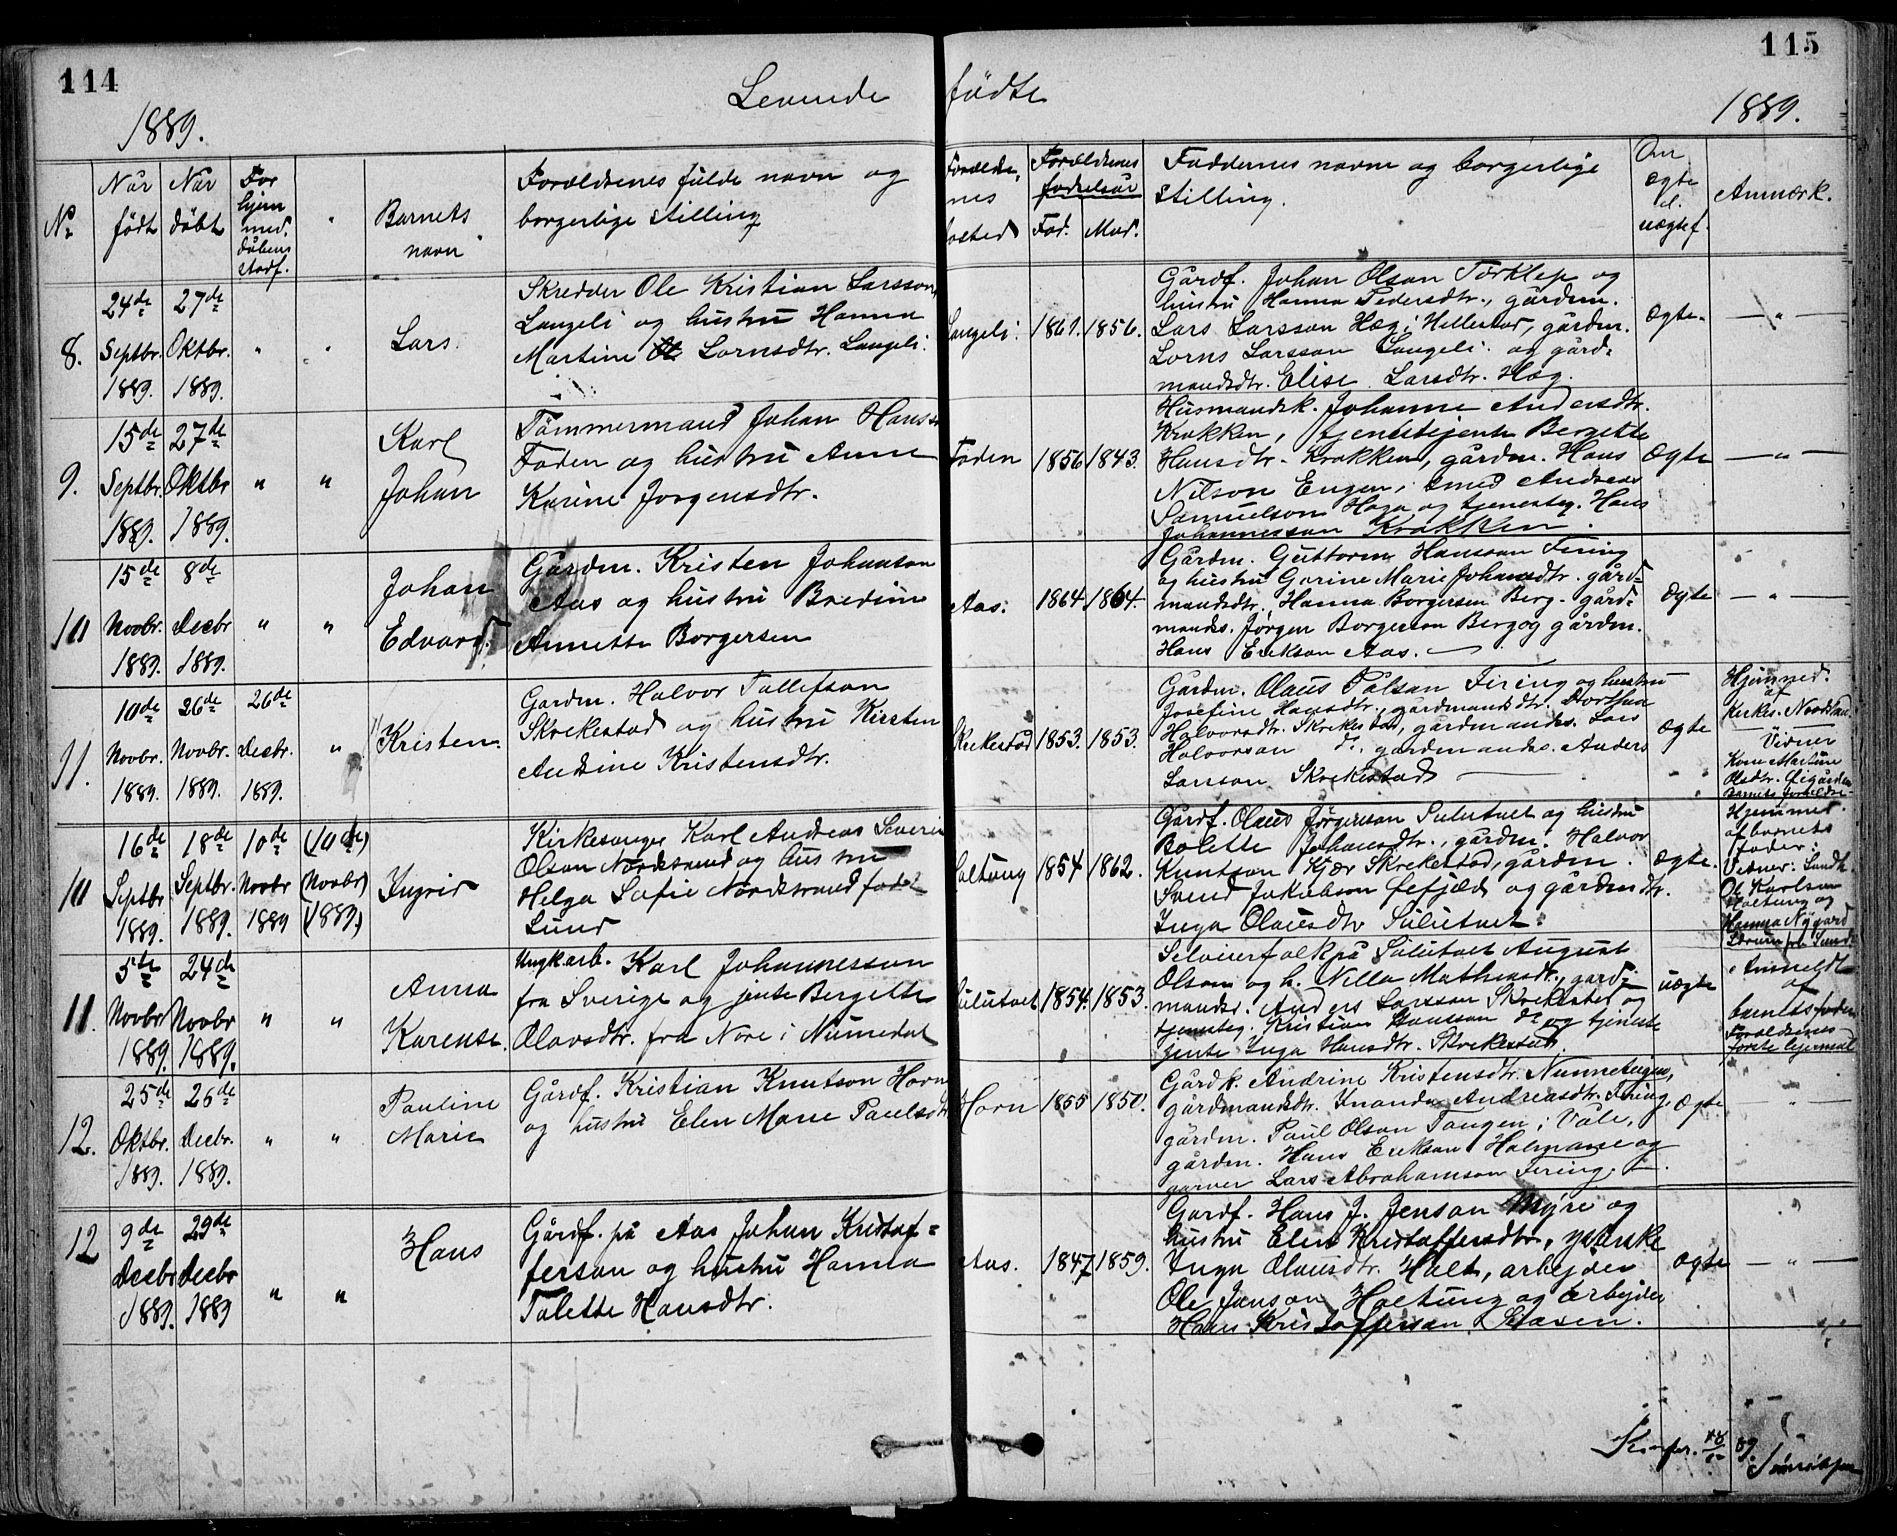 114
115
Levende fødte
1889.
1889.
No
Når født
Når døbt
For hjemmed. dåbens stadf.
Barnets navn
Forældrenes fulde navn og
borgerlige stilling
Forældrenes bosted
Forældrenes fødselsår
Fad. Mod.
Faddernes navne og borgerlige
stilling.
Om ægte el. uægtef.
Anmærk.
8.
24de Septbr. 1889.
27de Oktbr. 1889.
" "
Lars.
Skredder Ole Kristian Larsson
Langeli og hustru Hanna
Martine Lornsdtr. Langeli.
Langeli.
1861. 1856.
Gårdf. Johan Olson Torklep og
hustru Hanna Pedersdtr., gårdm.
Lars Larsson Hæg i Hillestad, gårdm.
Lorns Larsson Langeli og gård-
mandsdtr. Elise Larsdtr. Hæg.
Ægte.
— " —
9.
15de Septbr. 1889.
27de Oktbr. 1889.
" "
Karl Johan
Tømmermand Johan Hanss.
Foden og hustru Anne
Karine Jorgensdtr.
Foden
1856 1843.
Husmandsk. Johanne Andersdtr.
Krakken, tjenestejente Bergette
Hansdtr. Krakken, gårdm. Hans
Nilson Engen, smed Andreas
Samuelson Haga og tjenesteg. Hans
Johannesson Krakken.
Ægte
— " —
10
15de Novbr. 1889.
8de Decbr 1889.
" "
Johan Edvard.
Gårdm. Kristen Johanson
Aas og hustru Bredine
Annette Borgersen
Aas.
1864. 1864.
Gårdm. Guttorm Hansson Firing
og hustru Gorine Marie Johansdtr. gård-
mandsdtr. Hanna Borgersen Berg. gård-
mands. Jørgen Borgerson Berg og gårdm.
Hans Erikson Aas. —
Ægte
— " —
11.
10de Novbr. 1889.
26de Novbr. 1889.
26de Decbr. 1889.
"
Kristen.
Gardm. Halvor Tollefson
Skrekestad og hustru Kirsten
Andine Kristensdtr.
Skrekestad
1853. 1853.
Gårdm. Olaus Pålsan Firing og hustru
Josefine Hansdtr., gårdmandsdtr. Dorthea
Halvorsdtr. Skrekestad, gårdmands. Lars
Halvorson do, gårdmands. Anders
Larson Skrekestad —
Ægte
Hjemmed.
af
Kirkes. Nordstran.
Vidner
Kone Martine
Olsdtr.
Barnets forældre.
10
16de Septbr 1889.
18de Septbr. 1889.
10de Novbr 1889
(10de) (Novbr) (1889)
Ingrid
Kirkesanger Karl Andreas Severin
Olson Nordstrand og hustru
Helga Sofie Nordstrand født
Lund
Holtung
1854 1862.
Gårdf. Olaus Jørgenson Sulutvet og hustru
Bolette Johansdtr., gårdm. Halvor
Knutson Kjær Skrekestad, gårdm.
Svend Jakobson Gefjæld og gårdmdtr.
Inga Olausdtr Sulutvet.
Ægte.
Hjemmed.
af barnets
fader.
Vidner:
Ol. Karlson
Holtung og
Hanna Nygaard
11.
5te Novbr 1889.
24de Novbr 1889.
" "
Anna Karense.
Ungkarb. Karl Johannesson
fra Sverige og jente Bergette
Olavsdtr. fra Nore i Numedal
Sulutvet
1854. 1853.
Selveierfolk på Sulutvet August
Olson og h. Nilla Matheasdt., gård-
mands. Anders Larsson Skrekestad og
tjenesteg. Kristian Hansson do og tjeneste
jente Inga Hansdtr. Skrekestad.
uægte
Anmeldt
af
barnets fader.
Forældrenes
første lejermaal
12.
25de Oktbr. 1889.
26de Decbr. 1889.
" "
Pauline Marie
Gårdf. Kristian Knutson Horn
og hustru Elen Marie Paulsdtr
Horn
1855 1850.
Gårdk. Andrine Kristensdtr. Nunneengen,
gårdmandsdtr. Inanda Andreasdtr. Firing
gårdm. Paul Olson Tangen, Våle,
gårdm. Hans Erikson Holmane og
garver Lars Abrahamson Firing.
Ægte
"
12
9de Decbr 1889.
29de Decbr 1889
" "
Hans
Gårdf. på Aas Johan Kristof-
ferson og hustru Hanna
Talette Hansdtr.
Aas.
1847 1859.
Gardf. Hans J. Jenson Myre og
hustru Elen Kristoffersdtr., pianke
Inga Olausdtr. Holt, arbejder
Ole Janson Holtung og arbejder
Hans Kristofferson Stasen.
ægte
— " —